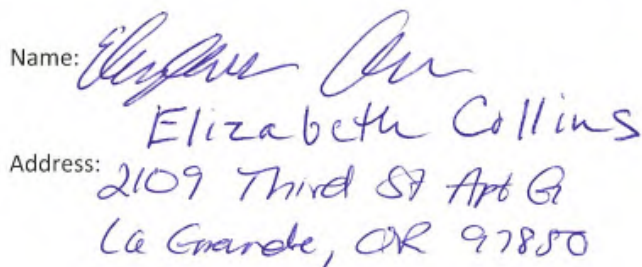 Name:
Elizabeth Collins
Address:
2109 Third St Apt G
La Grande, OR 97850